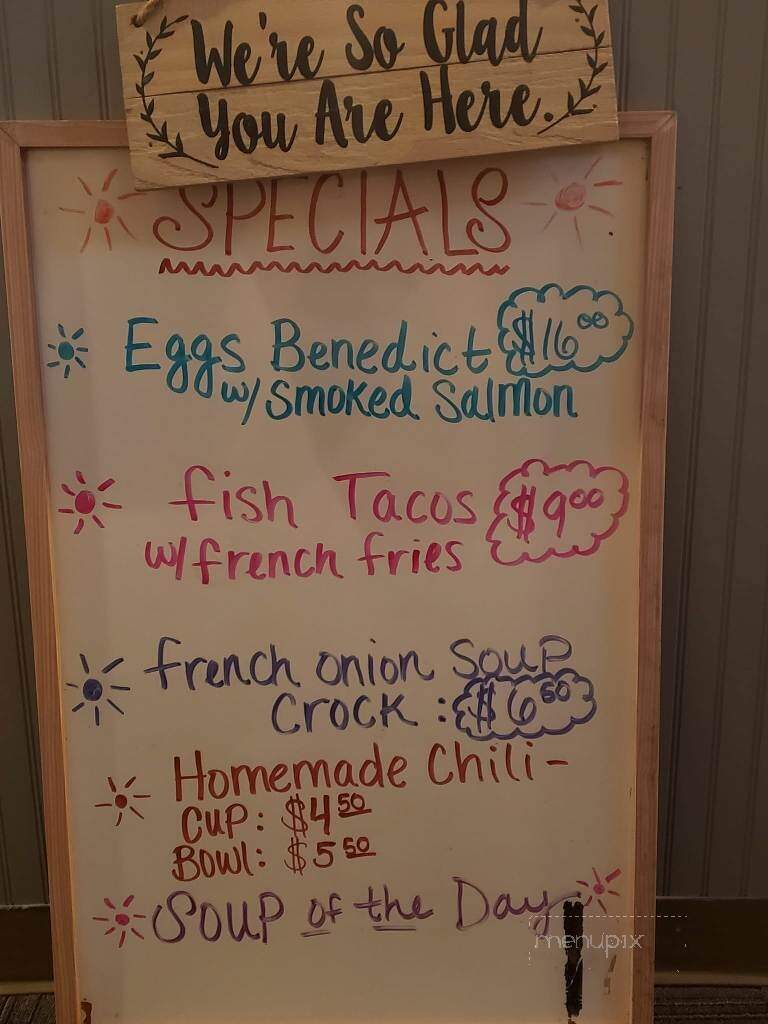 We're So Glad
You Are Here.
SPECIALS
Eggs Benedict $16.00
w/ Smoked Salmon
fish Tacos $9.00
w/ french fries
french onion Soup
Crock : $6.50
Homemade Chili-
CUP: $4.50
Bowl: $5.50
Soup of the Day
menupix